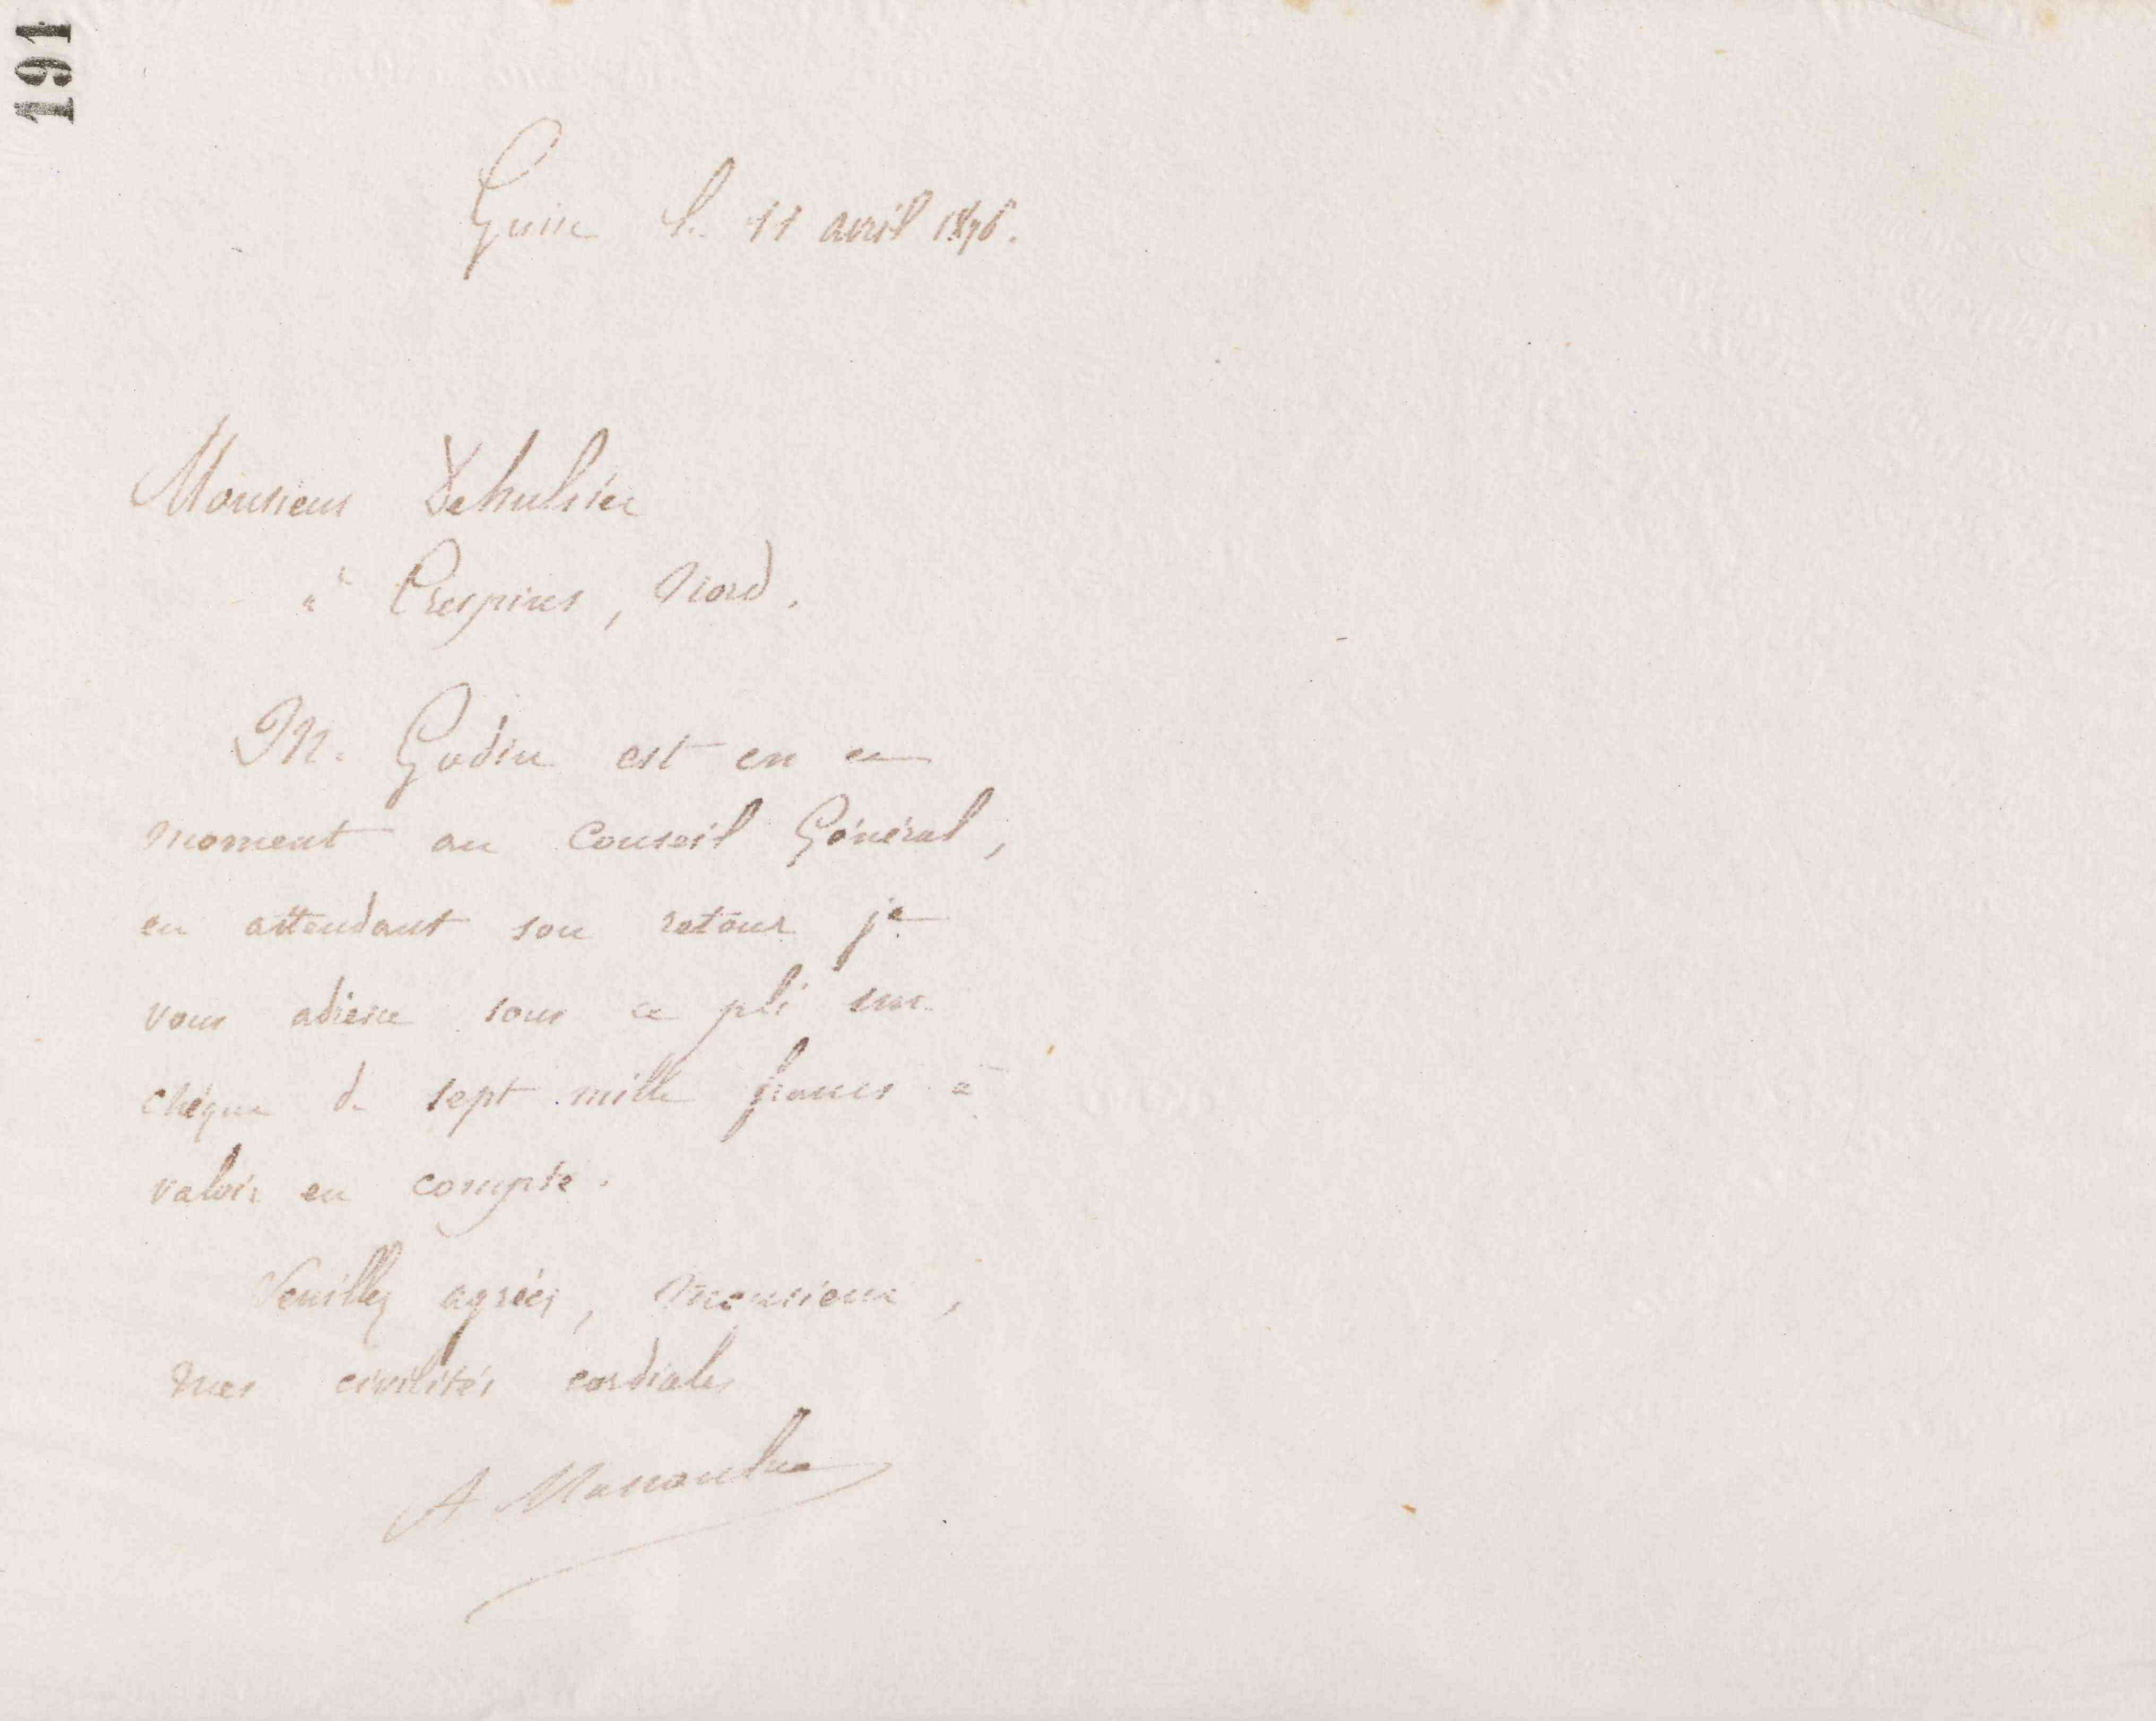 191
Guise le 11 avril 1876.
Monsieur Dehulster
à Crespins, Nord.
M. Godin est en ce
moment au Conseil Général,
en attendant son retour je
vous adresse sous ce pli un
chèque de sept mille francs à
valoir en compte.
Veuillez agréer, Monsieur,
mes civilités cordiales
A